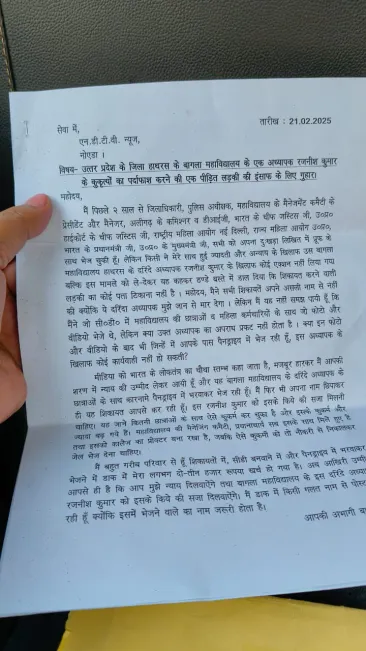 तारीख : 21.02.2025
सेवा में,
एन.डी.टी.वी. न्यूज,
नोएडा ।
विषय- उत्तर प्रदेश के जिला हाथरस के बागला महाविद्यालय के एक अध्यापक रजनीश कुमार
के कुकृत्यों का पर्दाफाश करने की एक पीड़ित लड़की की इंसाफ के लिए गुहार।
महोदय,
मैं पिछले २ साल से जिलाधिकारी, पुलिस अधीक्षक, महाविद्यालय के मैनेजमेंट कमैटी के
प्रेसीडेंट और मैनेजर, अलीगढ़ के कमिश्नर व डीआईजी, भारत के चीफ जस्टिस जी, उ०प्र०
हाईकोर्ट के चीफ जस्टिस जी, राष्ट्रीय महिला आयोग नई दिल्ली, राज्य महिला आयोग उ०प्र०,
भारत के प्रधानमंत्री जी, उ०प्र० के मुख्यमंत्री जी, सभी को अपना दुःखड़ा लिखित में प्रूफ के
साथ भेज चुकी हूँ। लेकिन किसी ने मेरे साथ हुई ज्यादती और अन्याय के खिलाफ उस बागला
महाविद्यालय हाथरस के दरिंदे अध्यापक रजनीश कुमार के खिलाफ कोई एक्शन नहीं लिया गया
बल्कि इस मामले को ले-देकर यह कहकर ठण्डे बस्ते में डाल दिया कि शिकायत करने वाली
लड़की का कोई पता ठिकाना नहीं है । महोदय, मैंने सभी शिकायतें अपने असली नाम से नहीं
की क्योंकि ये दरिंदा अध्यापक मुझे जान से मार देगा । लेकिन मैं यह नहीं समझ पायी हूँ कि
मैंने जो सी०डी० में महाविद्यालय की छात्राओं व महिला कर्मचारियों के साथ जो फोटो और
वीडियो भेजे थे, लेकिन क्या उक्त अध्यापक का अपराध प्रकट नहीं होता है । क्या इन फोटो
और वीडियो के बाद भी जिन्हें मैं आपके पास पैनड्राइव में भेज रही हूँ, इस अध्यापक के
खिलाफ कोई कार्यवाही नहीं हो सकती?
मीडिया को भारत के लोकतंत्र का चौथा स्तम्भ कहा जाता है, मजबूर हारकर मैं आपकी
शरण में न्याय की उम्मीद लेकर आयी हूँ और यह बागला महाविद्यालय के दरिंदे अध्यापक के
छात्राओं के साथ कारनामे पैनड्राइव में भरवाकर भेज रही हूँ। मैं फिर भी अपना नाम छिपाकर
ही यह शिकायत आपसे कर रही हूँ। इस रजनीश कुमार को इसके किये की सजा मिलनी
चाहिए। यह जाने कितनी छात्राओं के साथ ऐसे कुकर्म कर चुका है और इसके कुकर्म और
ज्यादा बढ़ गये हैं। महाविद्यालय की मैनेजिंग कमैटी, प्रधानाचार्य सब इसके साथ मिले हुए हैं
तथा इसको कालेज का प्रॉक्टर बना रखा है, जबकि ऐसे कुकर्मी को तो नौकरी से निकालकर
जेल भेज देना चाहिए।
मैं बहुत गरीब परिवार से हूँ शिकायतों में, सीडी बनवाने में और पैनड्राइव में भरवाकर
भेजने में डाक में मेरा लगभग दो-तीन हजार रूपया खर्चा हो गया है। अब आखिरी उम्मीद
आपसे ही है कि आप मुझे न्याय दिलवाऐंगे तथा बागला महाविद्यालय के इस दरिंदे
रजनीश कुमार को इसके किये की सजा दिलवाऐंगे। मैं डाक में किसी गलत नाम से
रही हूँ क्योंकि इसमें भेजने वाले का नाम जरूरी होता है।
आपकी अभागी